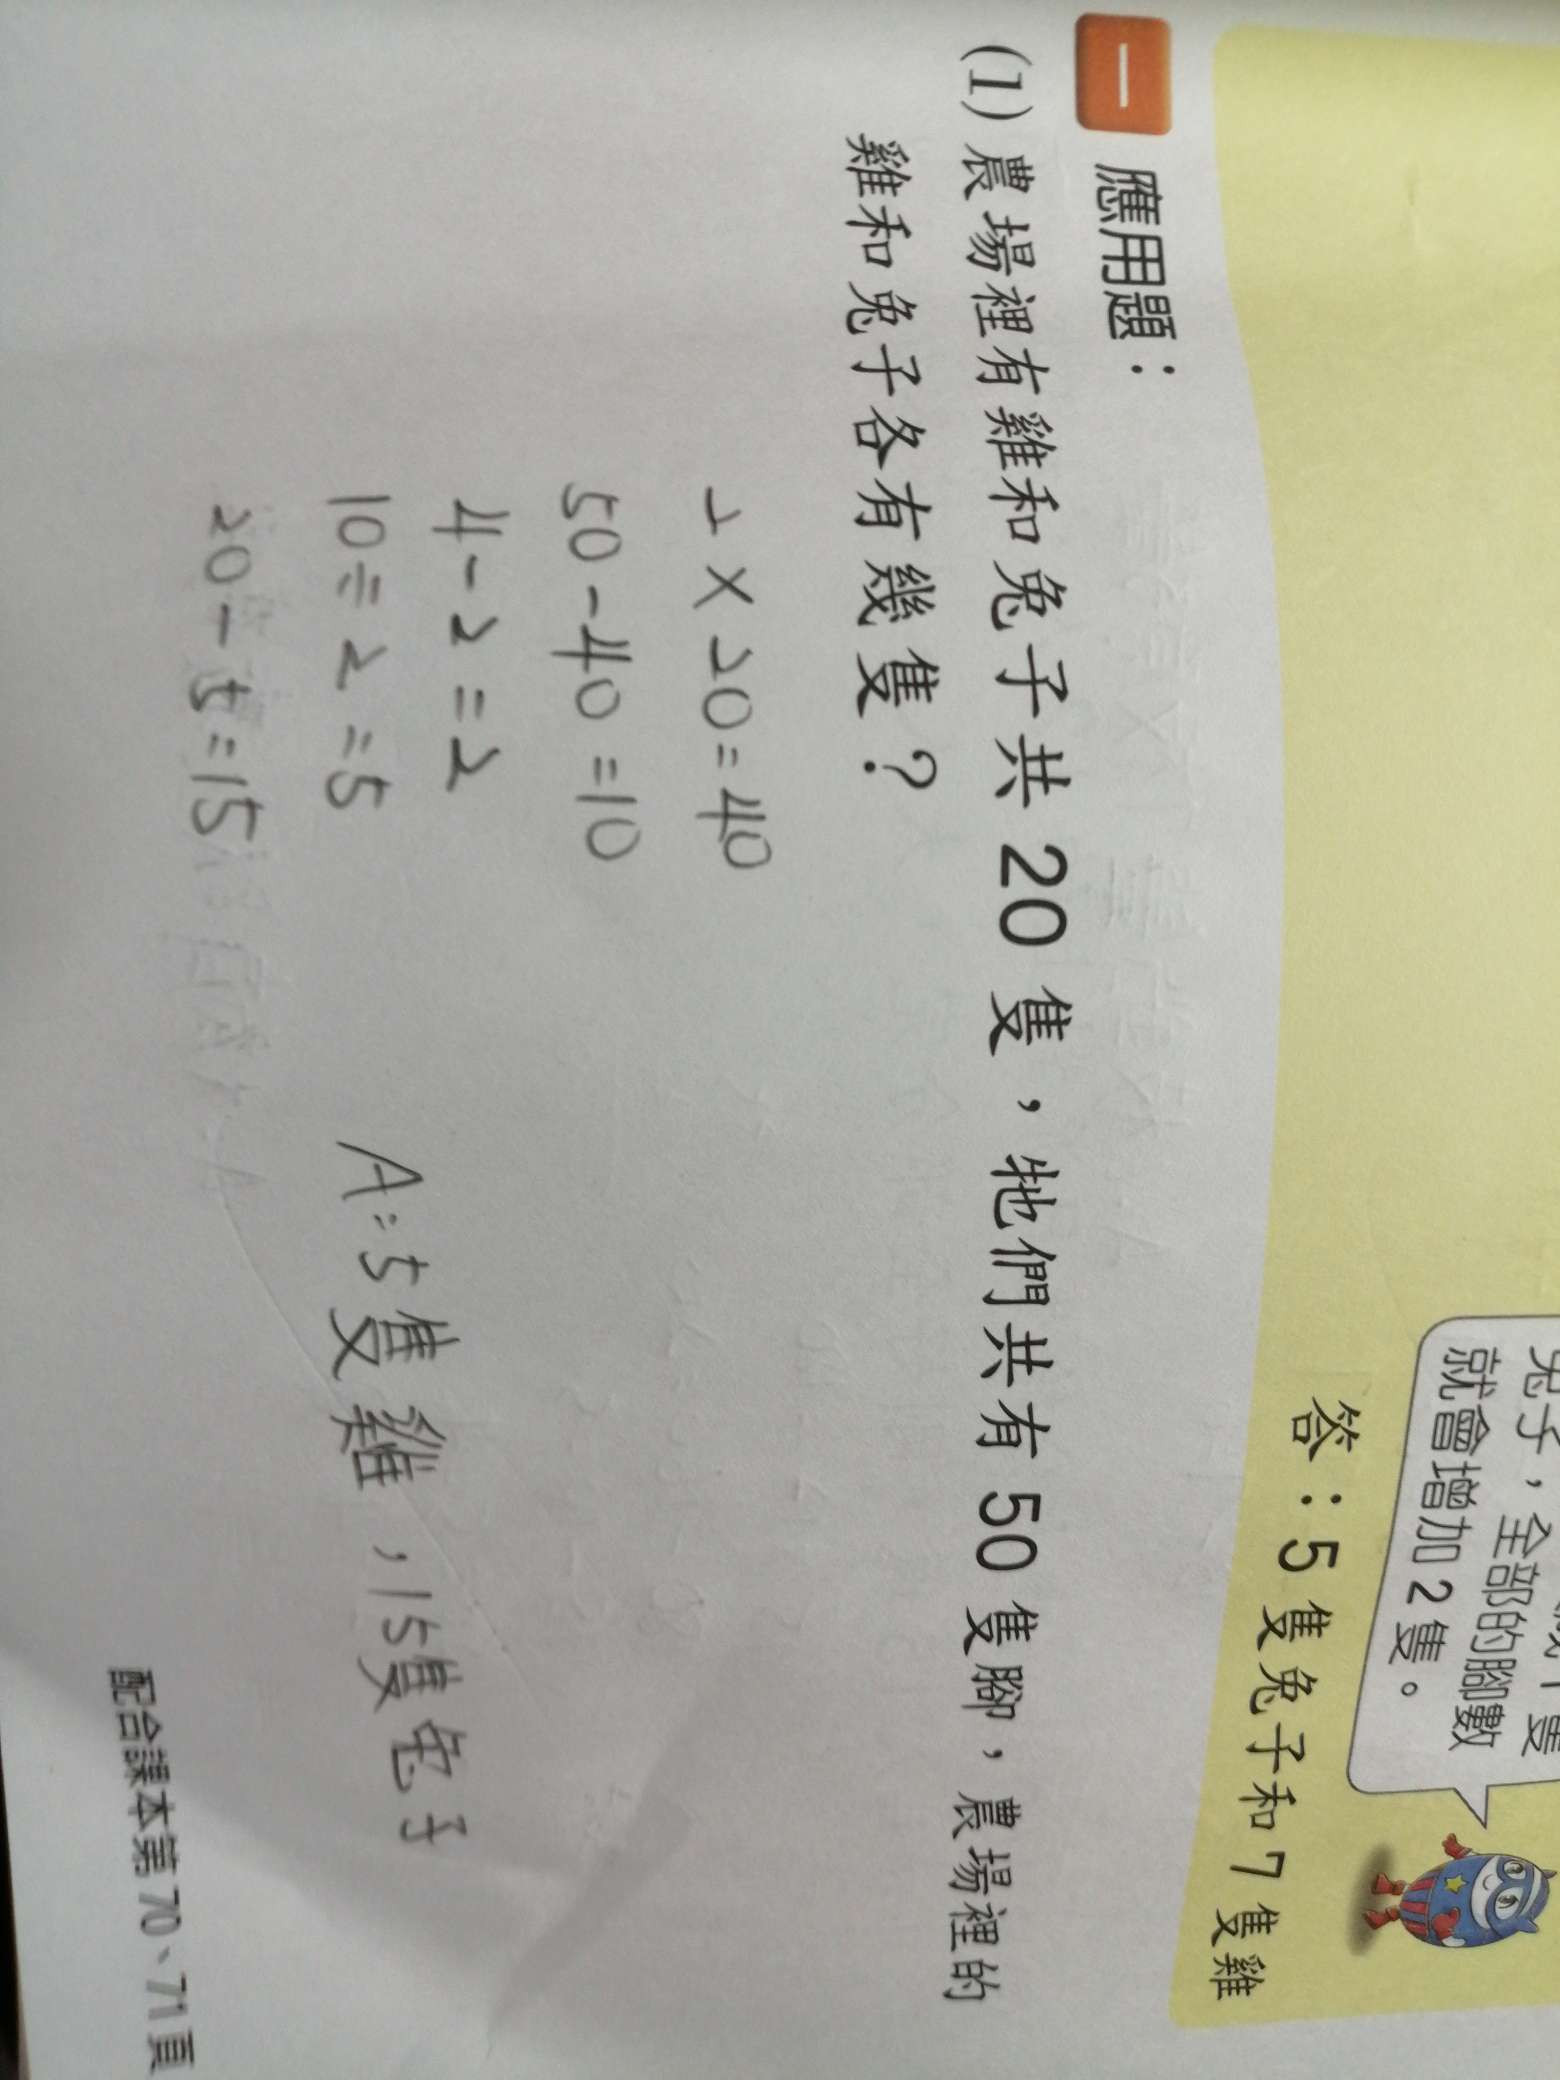 兔子，全部的腳數
就會增加2隻。
答：5隻兔子和7隻雞
一 應用題：
(1) 農場裡有雞和兔子共20隻，牠們共有50隻腳，農場裡的
雞和兔子各有幾隻？
2×20=40
50-40=10
4-2=2
10÷2=5
20-5=15
A:5隻雞,15隻兔子
配合課本第70、71頁